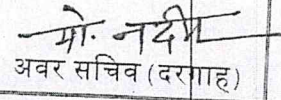 मो. नदीम
अवर सचिव (दरगाह)